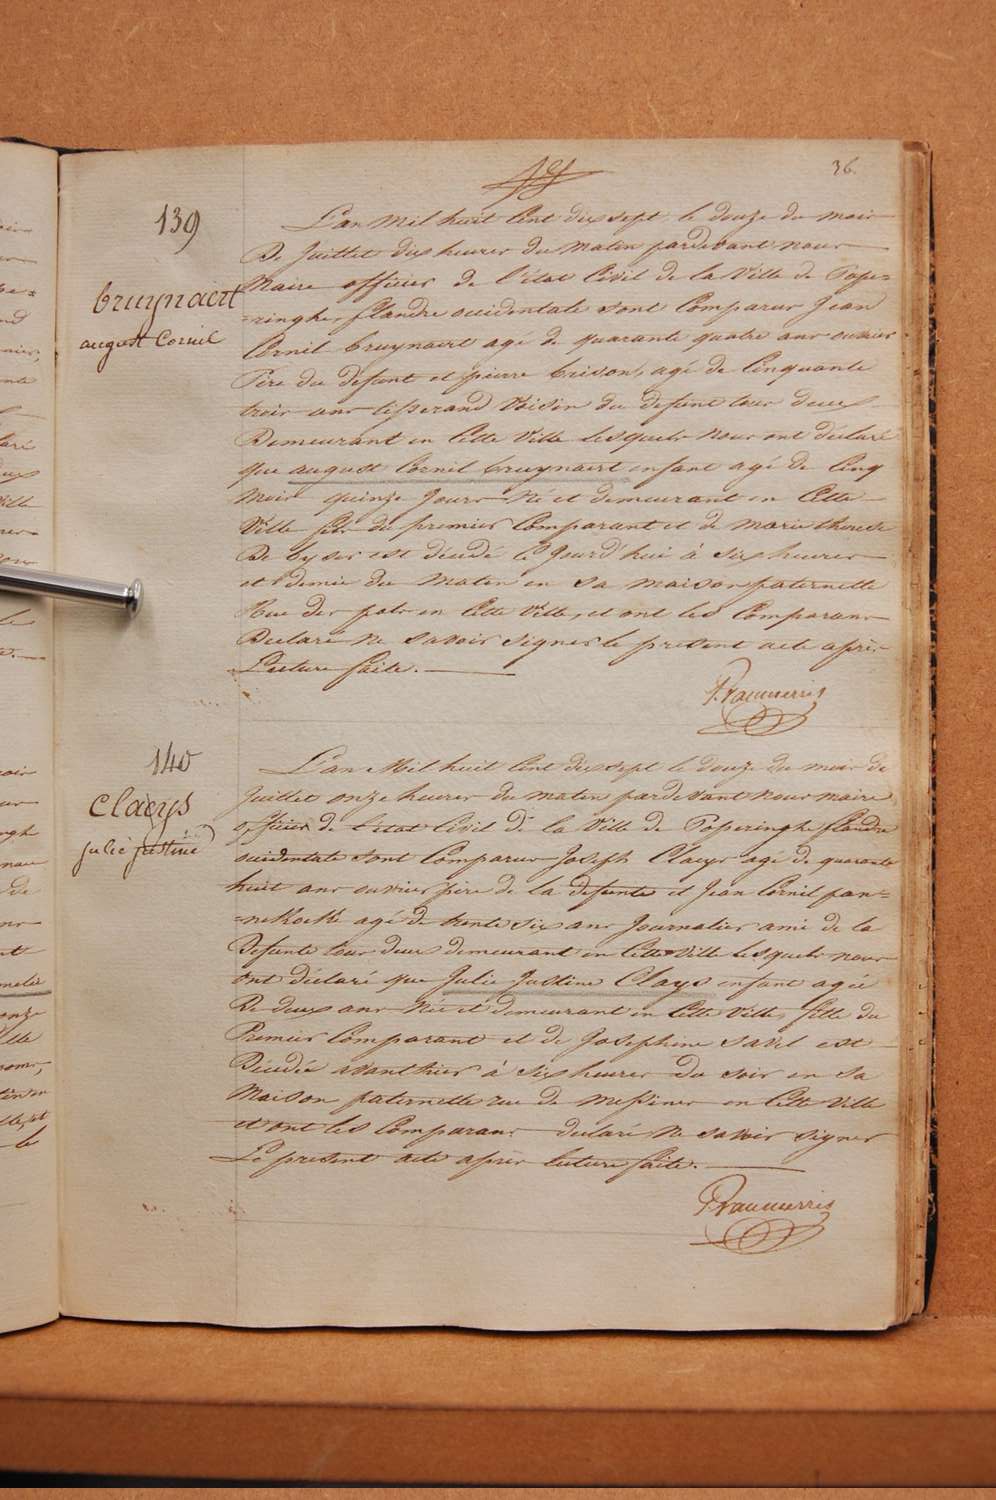 36.
139
bruynaert
august Cornil
L'an Mil huit Cent dix sept le douze du mois
De Juillet dix heures du matin pardevant nous
Maire officier de l'état Civil de la Ville de Pope=
=ringhe, flandre occidentale sont Comparus Jean
Cornil bruynaert agé de quarante quatre ans ouvrier
Père du defunt et pierre brison, agé de Cinquante
trois ans tisserand Voisin du defunt tous deux
Demeurant en Cette Ville Lesquels nous ont déclaré
que august Cornil bruynaert enfant agé de Cinq
Mois quinze Jours Né et demeurant en Cette
Ville fils du premier Comparant et de marie therese
De byser est décédé Ce Jourd'hui à six heures
et demie du Matin en sa maison paternelle
Rue des pots en Cette Ville, et ont les Comparans
Declaré Ne savoir signer le present acte après
Lecture faite.
140
Claeys
julie justine
L'an Mil huit Cent dix sept le douze du mois de
Juillet onze heures du matin pardevant nous maire
officier de l'etat Civil de la Ville de Poperinghe flandre
occidentale sont Comparus Joseph Claeys agé de quarante
huit ans ouvrier père de la defunte et Jean Cornil pan=
=nekocke agé de trente six ans Journalier ami de la
Defunte tous deux demeurant en Cette Ville Lesquels nous
ont déclaré que Julie Justine Claeys enfant agée
De deux ans Née et demeurant en Cette Ville, fille du
Premier Comparant et de Josephine Savel est
Décédée avant hier à six heures du soir en sa
Maison paternelle rue de Messines en Cette Ville
et ont les Comparans declaré Ne savoir signer
Le present acte après lecture faite.